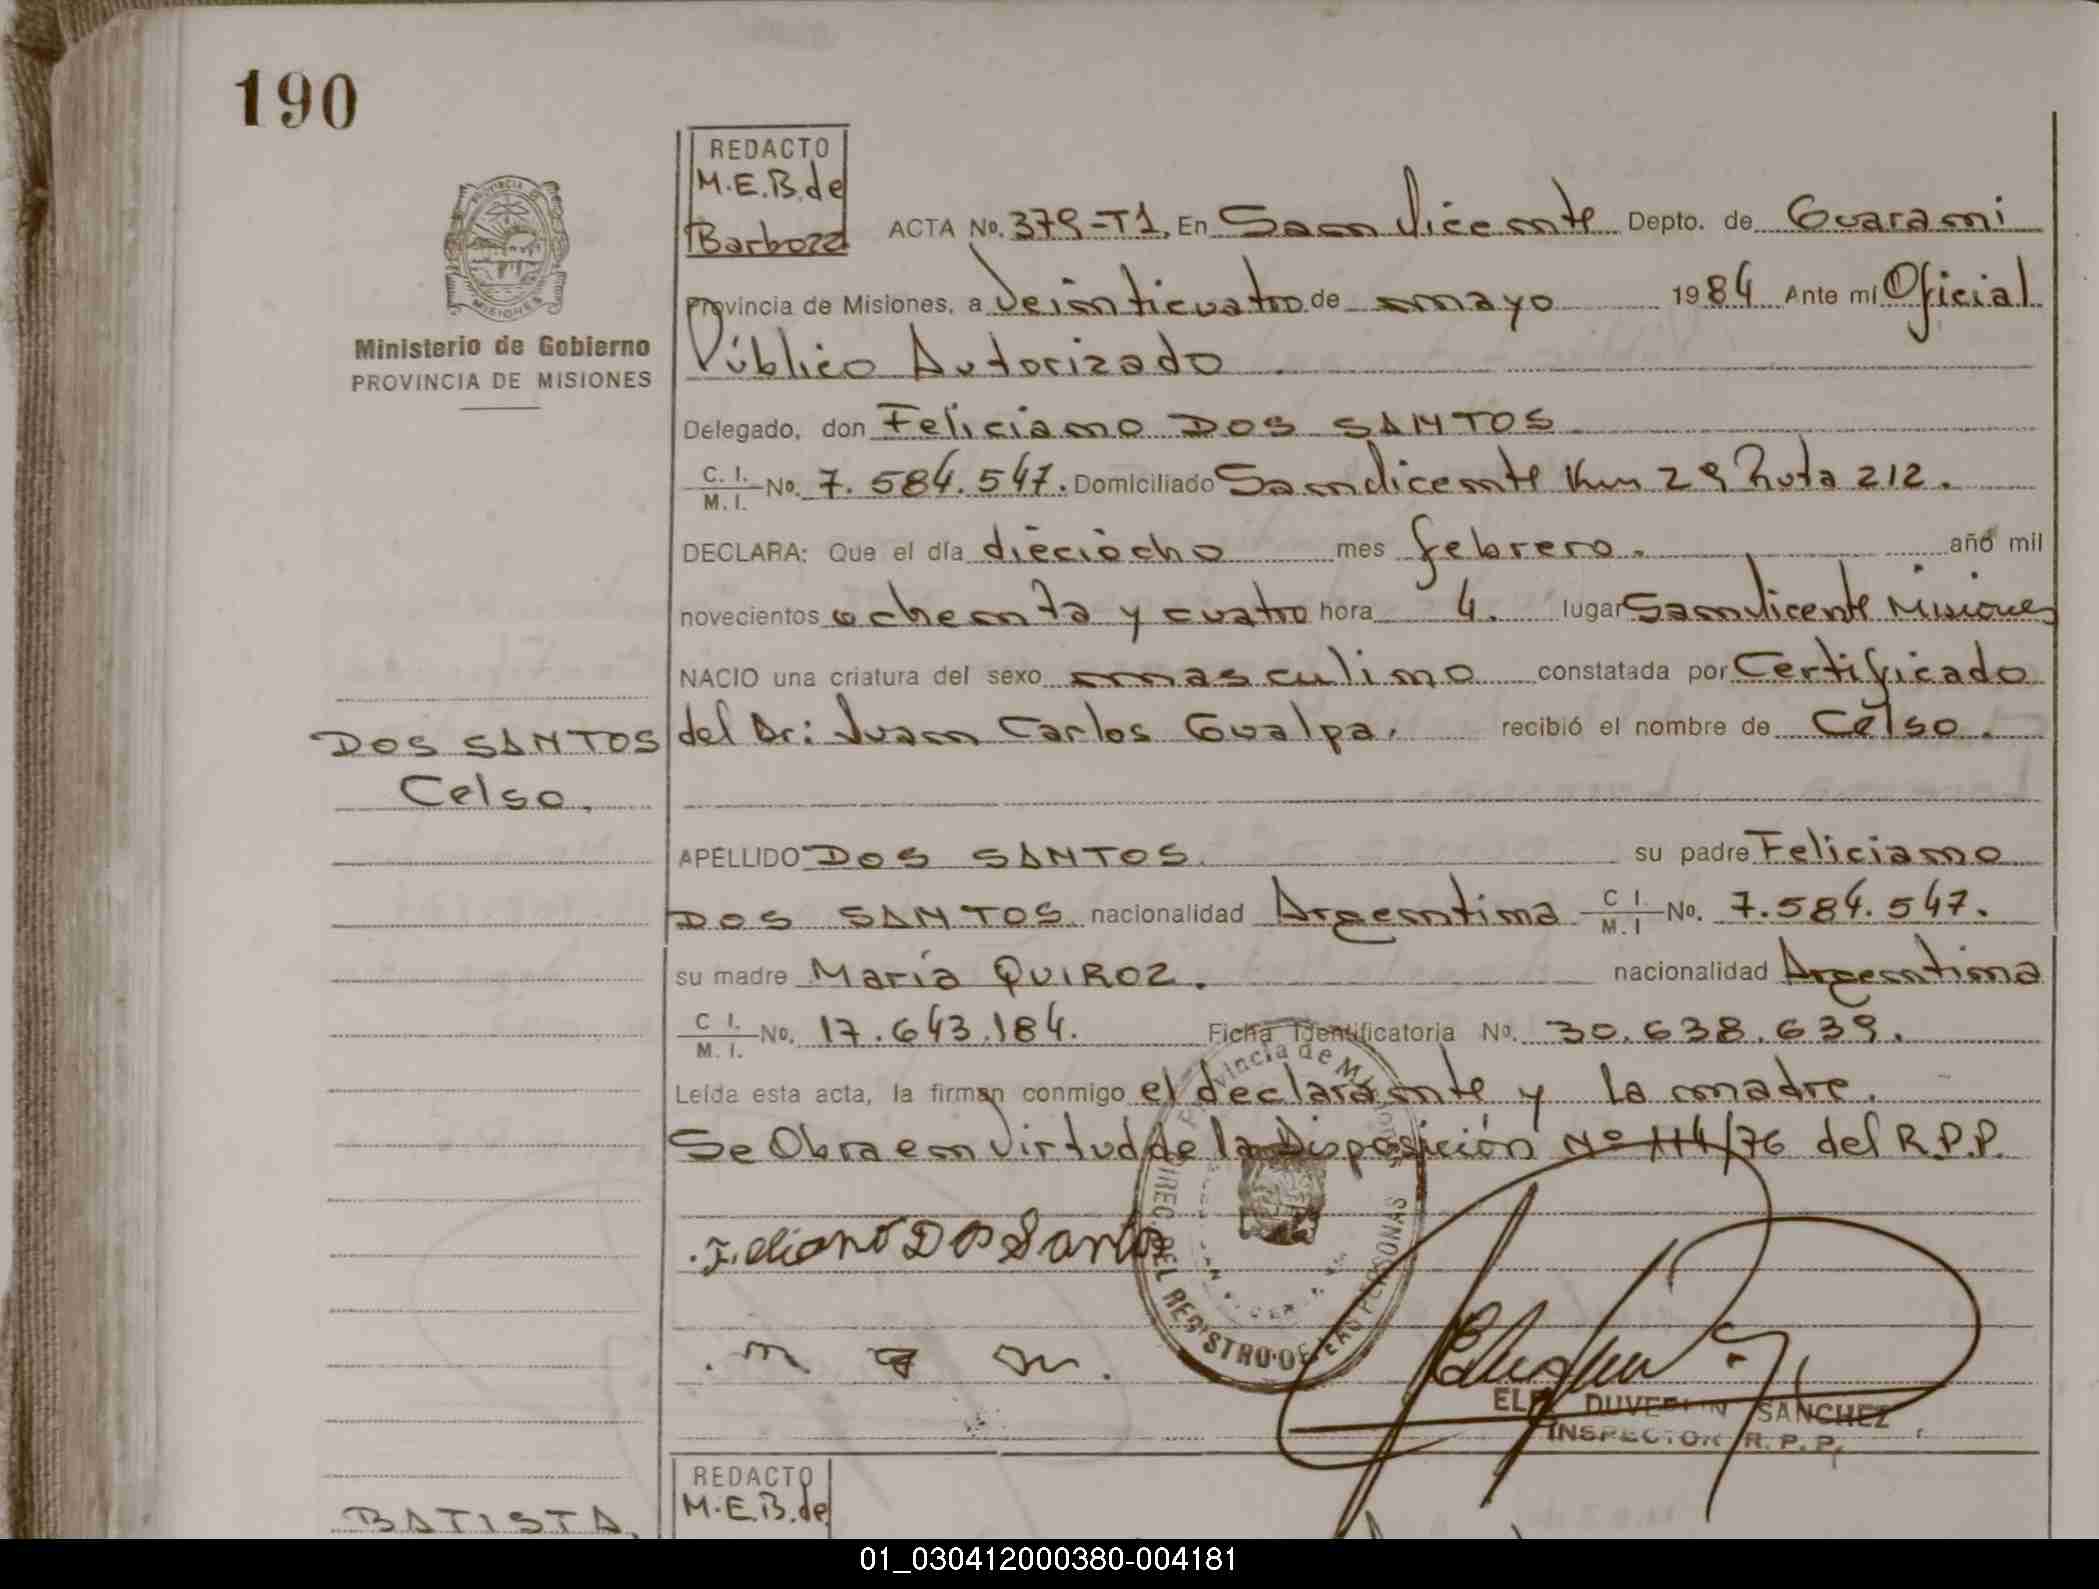 190
REDACTO
M.E.B. de
Barboza
ACTA No. 379-T1. En San Vicente Depto. de Guarani
Provincia de Misiones, a Veinticuatro de mayo 1984 Ante mí Oficial
Público Autorizado
Ministerio de Gobierno
PROVINCIA DE MISIONES
Delegado, don Feliciano DOS SANTOS
C. I. M. I. No. 7.584.547. Domiciliado San Vicente Km 29 Ruta 212.
DECLARA: Que el día dieciocho mes febrero. año mil
novecientos ochenta y cuatro hora 4. lugar San Vicente Misiones
NACIO una criatura del sexo masculino constatada por Certificado
del Dr: Juan Carlos Gualpa. recibió el nombre de Celso.
DOS SANTOS
Celso.
APELLIDO DOS SANTOS su padre Feliciano
DOS SANTOS nacionalidad Argentina C I. M. I No. 7.584.547.
su madre María QUIROZ. nacionalidad Argentina
C I. M. I. No. 17.643.184. Ficha Identificatoria No. 30.638.639.
Leída esta acta, la firman conmigo el declarante y la madre.
Se Obra en Virtud de la Disposición Nº 114/76 del R.P.P.
Provincia de Misiones
DIREC. DEL REGISTRO DE LAS PERSONAS
Feliciano Dos Santos
DUVERLIN SANCHEZ
INSPECTOR R. P. P.
REDACTO
M.E.B. de
BATISTA,
01_030412000380-004181